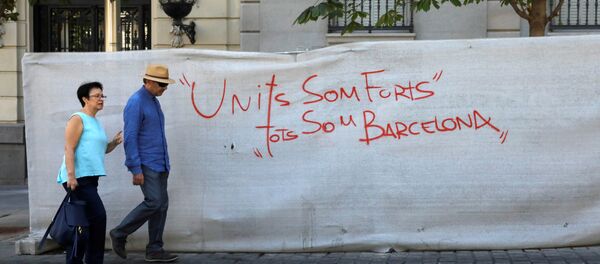 "Units Som Forts"
"tots Som Barcelona"